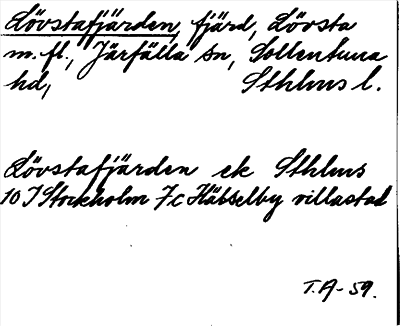 Lövstafjärden, fjärd, Lövsta
m. fl., Järfälla sn, Sollentuna
hd, Sthlms l.
Lövstafjärden ek Sthlms
10 I Stockholm 7c Hässelby villastad
T.A-59.